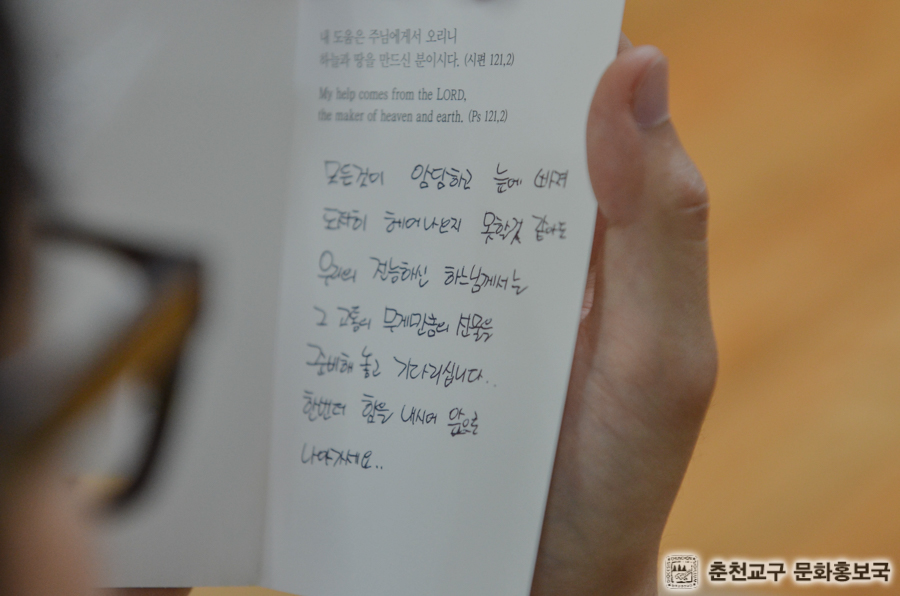 내 도움은 주님에게서 오리니
하늘과 땅을 만드신 분이시다. (시편 121,2)
My help comes from the LORD,
the maker of heaven and earth. (Ps 121,2)
모든것이 암담하고 늪에 빠져
도저히 헤어나오지 못할것 같아도
우리의 전능하신 하느님께서는
그 고통의 무게만큼의 선물을
준비해 놓고 기다리십니다..
한번더 힘을 내시어 앞으로
나아가세요..
춘천교구 문화홍보국